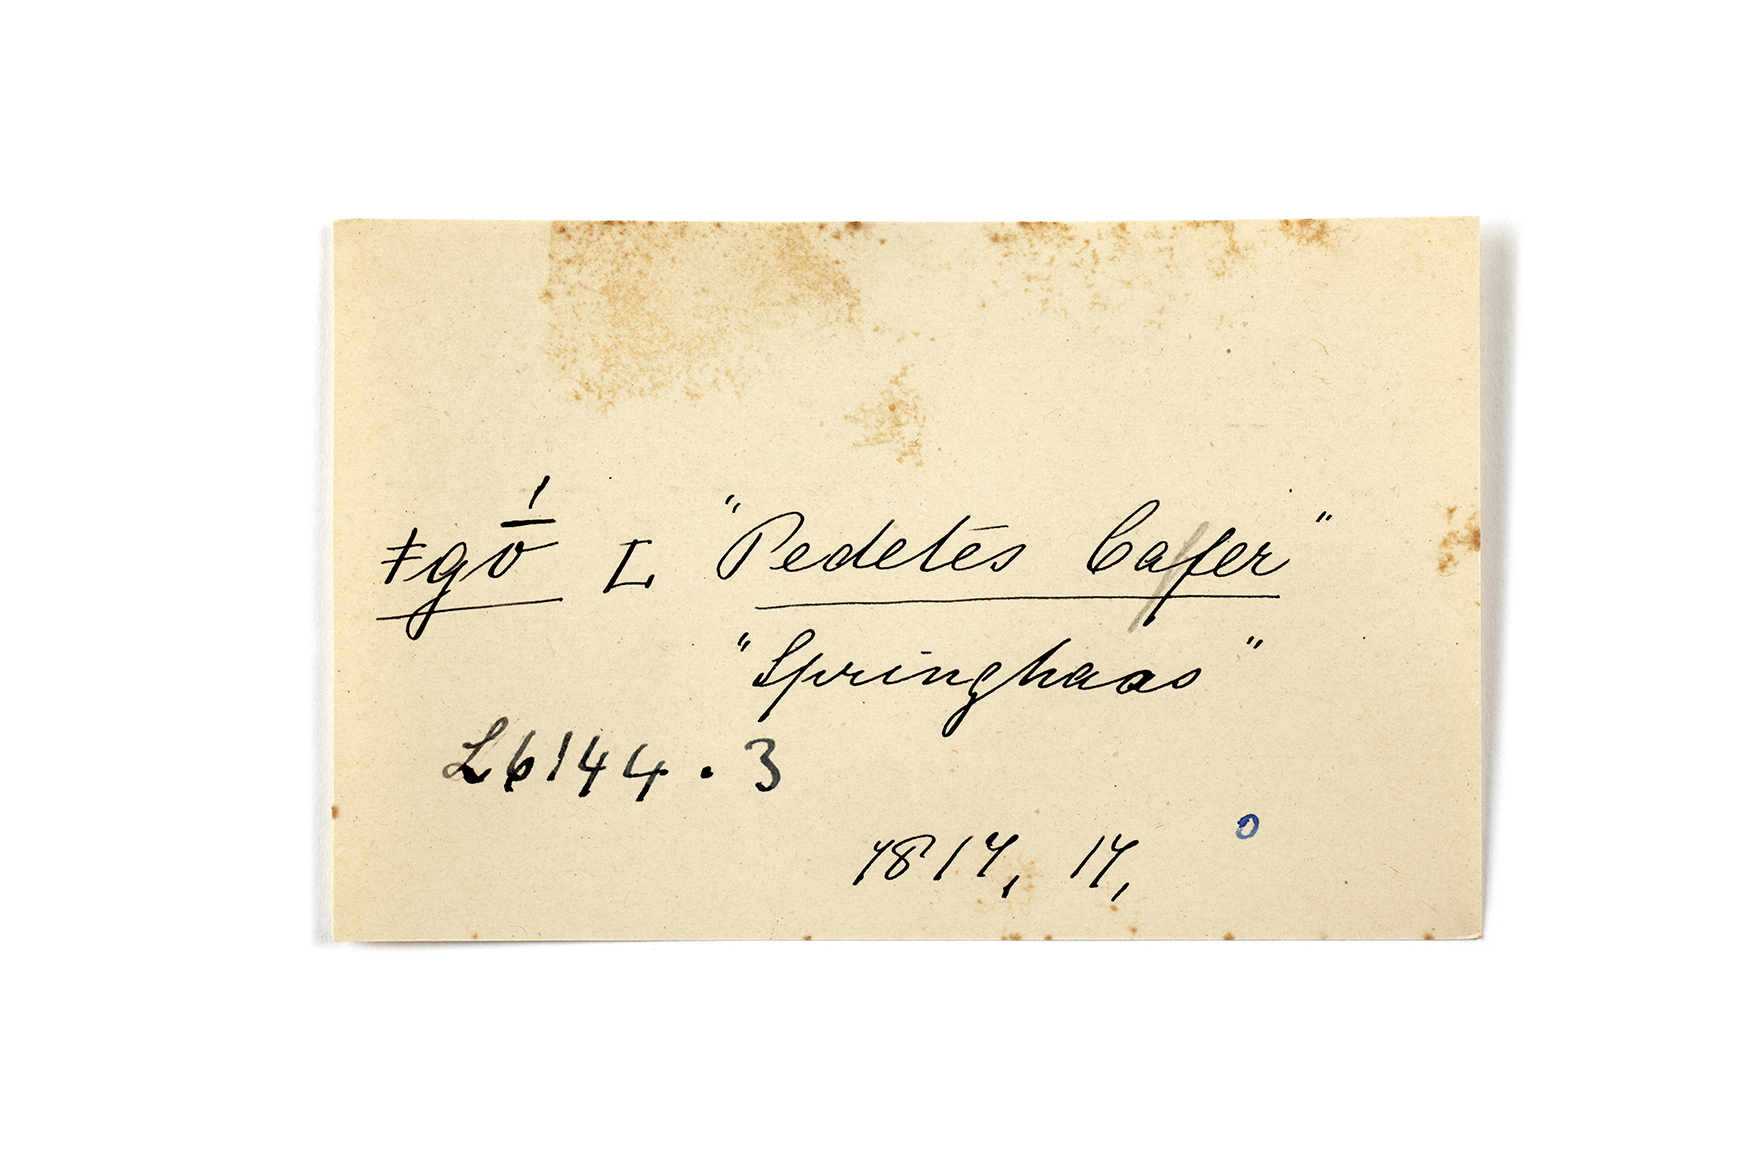 ǂgṓ L "Pedetēs Cafer"
"Springhaas"
L6144.3
7817, 17,